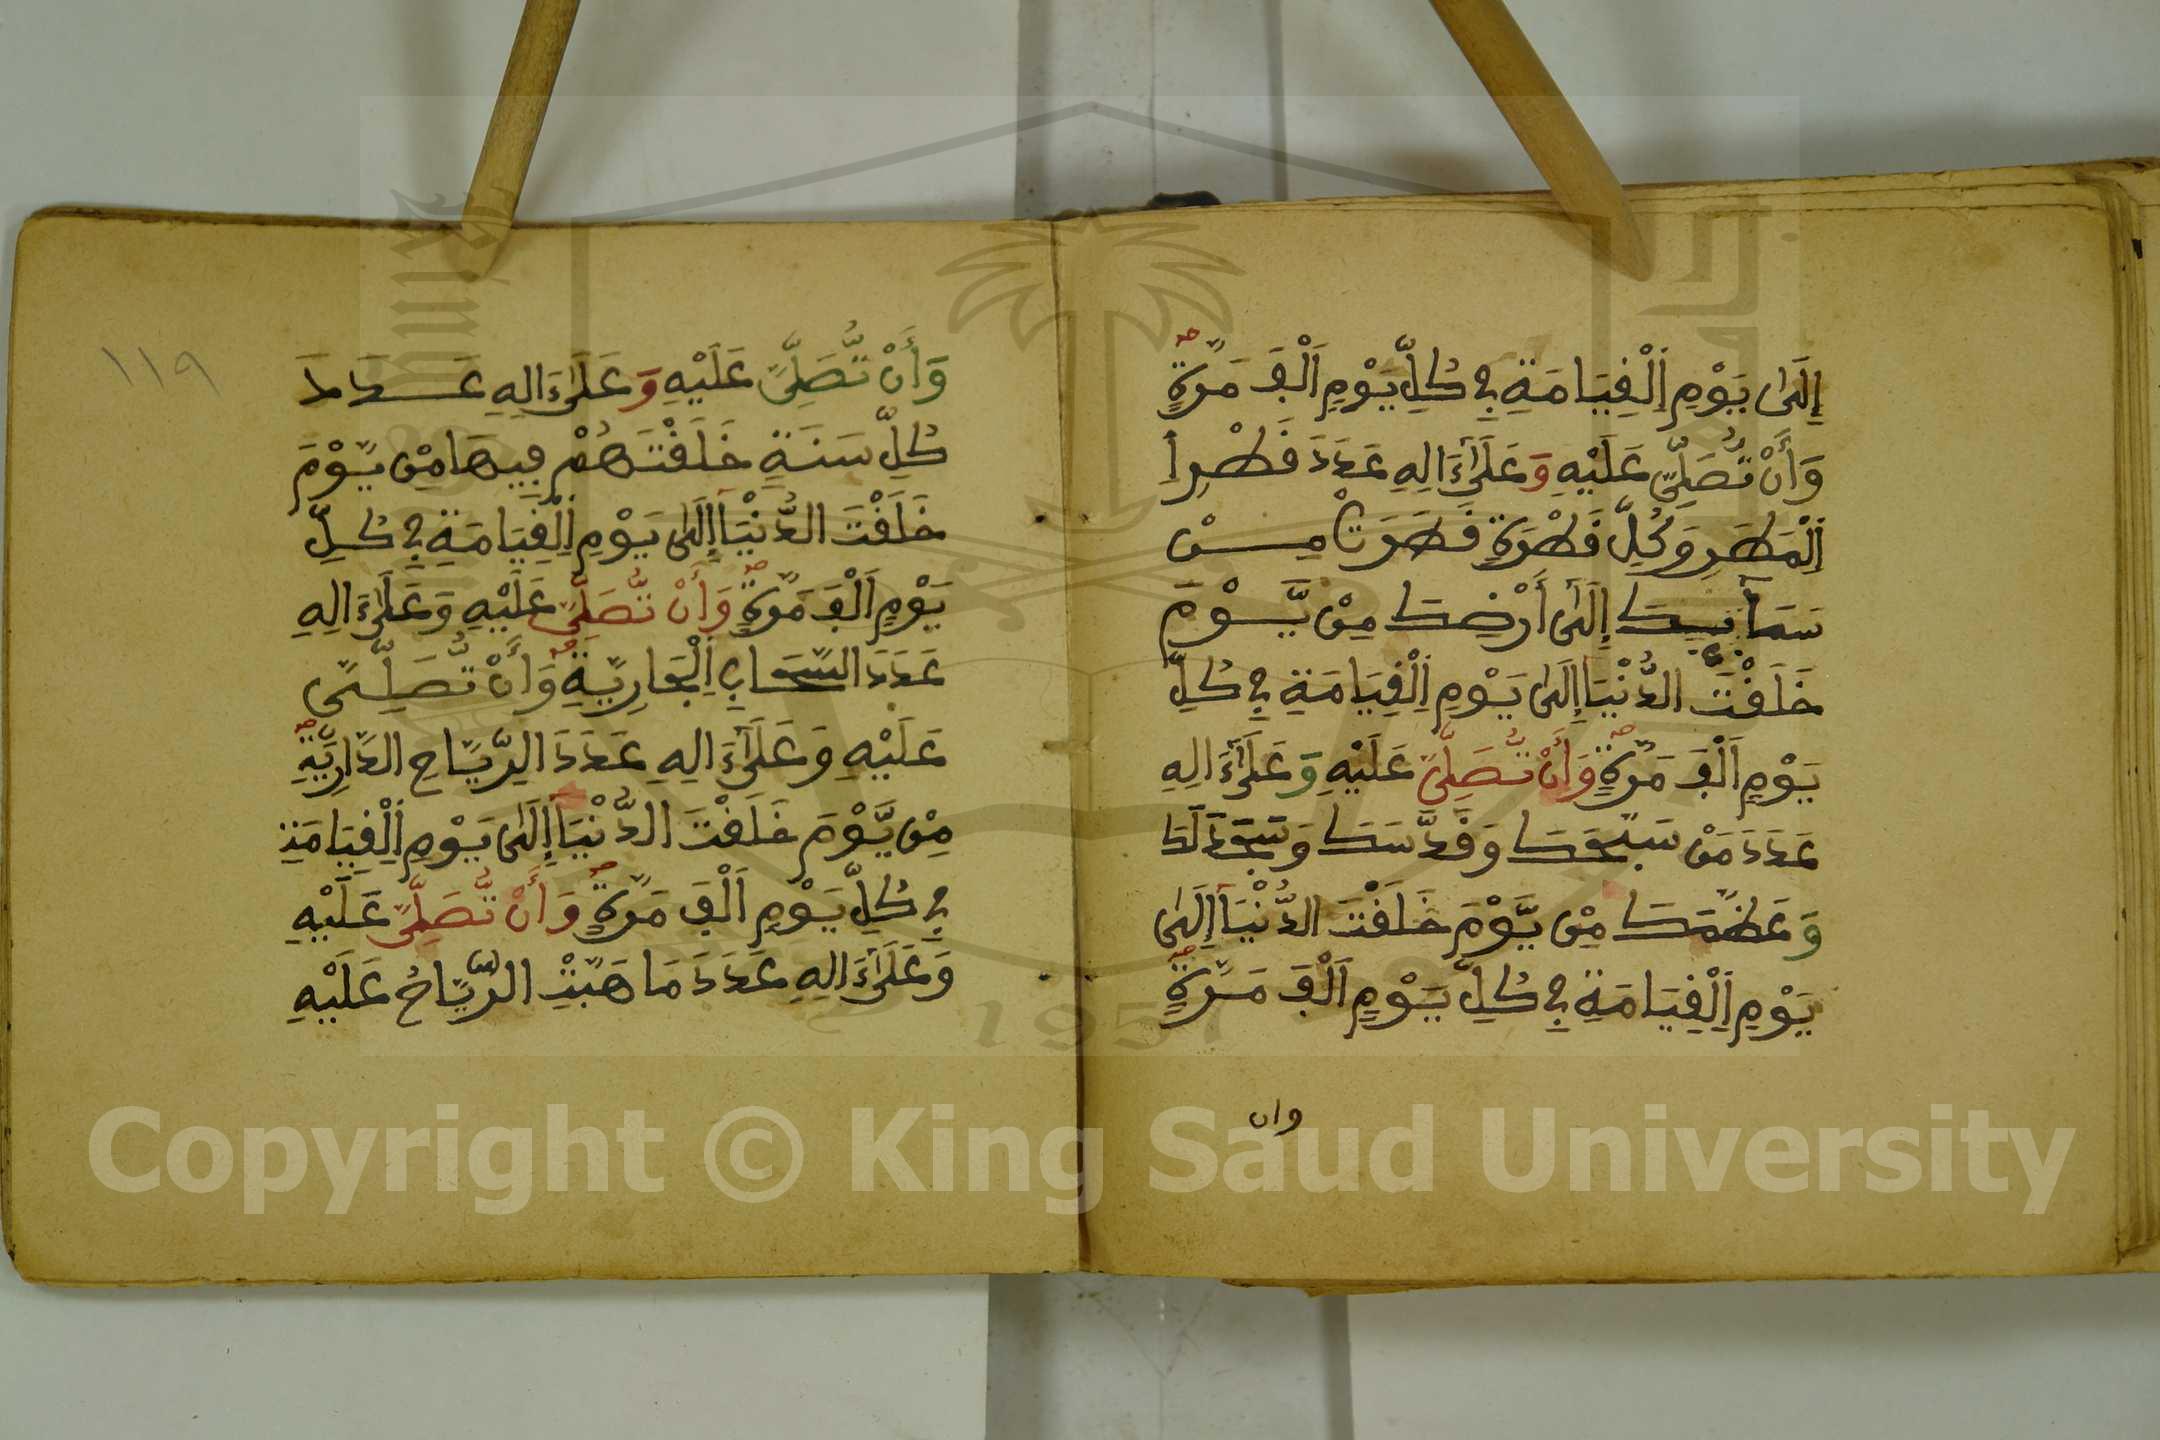 إِلَىٰ يَوْمِ اِ۬لْقِيَامَةِ فِے كُلِّ يَوْمٍ اَلْفَ مَرَّةٍ
وَأَنْ تُّصَلِّيَ عَلَيْهِ وَعَلَىٰٓ ءَالِهِ عَدَدَ قَطْرِ اِ
اِ۬لْمَطَرِ وَكُلِّ قَطْرَةٍ قَطَرَتْ مِــنْ
سَمَآئِكَ إِلَىٰٓ أَرْضِكَ مِنْ يَّــوْمَ
خَلَقْتَ الدُّنْيَآ إِلَىٰ يَوْمِ اِ۬لْقِيَامَةِ فِے كُلِّ
يَوْمٍ اَلْفَ مَرَّةٍ وَأَنْ تُّصَلِّيَ عَلَيْهِ وَعَلَىٰٓ ءَالِهِ
عَدَدَ مَنْ سَبَّحَكَ وَقَدَّسَكَ وَسَجَدَ لَكَ
وَعَظَّمَكَ مِنْ يَّوْمَ خَلَقْتَ الدُّنْيَآ إِلَىٰ
يَوْمِ اِ۬لْقِيَامَةِ فِے كُلِّ يَوْمٍ اَلْفَ مَرَّةٍ
وان
١١٩
وَأَنْ تُّصَلِّيَ عَلَيْهِ وَعَلَىٰٓ ءَالِهِ عَــدَدَ
كُلِّ سَنَةٍ خَلَقْتَهُمْ فِيهَا مِنْ يَّوْمَ
خَلَقْتَ الدُّنْيَآ إِلَىٰ يَوْمِ اِ۬لْقِيَامَةِ فِے كُلِّ
يَوْمٍ اَلْفَ مَرَّةٍ وَأَنْ تُّصَلِّيَ عَلَيْهِ وَعَلَىٰٓ ءَالِهِ
عَدَدَ السَّحَابِ اِ۬لْجَارِيَةِ وَأَنْ تُّصَلِّيَ
عَلَيْهِ وَعَلَىٰٓ ءَالِهِ عَدَدَ الرِّيَاحِ الذَّارِيَةِ
مِنْ يَّوْمَ خَلَقْتَ الدُّنْيَآ إِلَىٰ يَوْمِ اِ۬لْقِيَامَةِ
فِے كُلِّ يَوْمٍ اَلْفَ مَرَّةٍ وَأَنْ تُّصَلِّيَ عَلَيْهِ
وَعَلَىٰٓ ءَالِهِ عَدَدَ مَا هَبَّتْ الرِّيَاحُ عَلَيْهِ
1957
Copyright © King Saud University